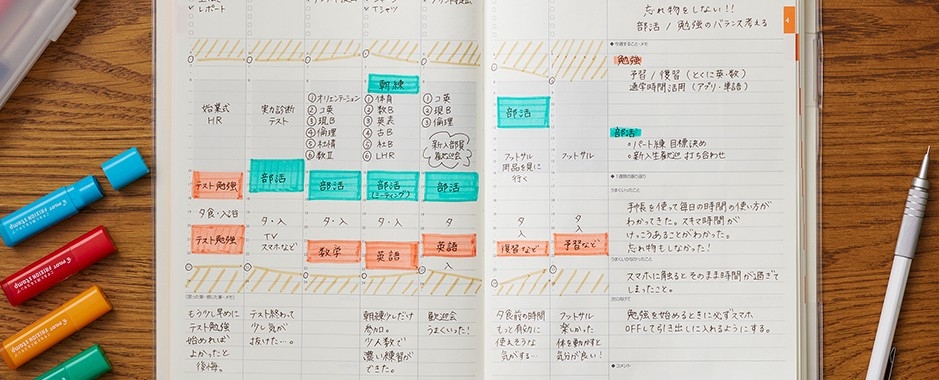 レポート
Tシャツ
始業式
HR
テスト勉強
夕食・入浴
テスト勉強
もう少し早めに
テスト勉強
始めれば
よかったと
後悔。
実力診断
テスト
部活
夕・入
TV
スマホなど
テスト終わって
少し気が
抜けた…。
①オリエンテーション
②コ英
③現B
④倫理
⑤社情
⑥数Ⅱ
部活
夕・入
数学
朝練
①体育
②数B
③英表
④古B
⑤社B
⑥LHR
部活
(ミーティング)
夕・入
英語
朝練少しだけ
参加。
少人数で
濃い練習が
できた。
①コ英
②現B
③倫理
新入部員
歓迎会
部活
夕
英語
入
歓迎会
うまくいった!
部活
フットサル
用品を見に
行く
夕
入
復習など
夕食前の時間
もっと有効に
使えそうな
気がする…
フットサル
夕
入
予習など
フットサル
楽しかった
体を動かすと
気分が良い!
忘れ物をしない!!
部活/勉強のバランス考える
4
◆今週すること・メモ
勉強
予習/復習(とくに英・数)
通学時間活用(アプリ・単語)
部活
○パート練 目標決め
○新入生歓迎 打ち合わせ
◆1週間の振り返り
うまくいったこと
手帳を使って毎日の時間の使い方が
わかってきた。スキマ時間が
けっこうあることがわかった。
忘れ物もしなかった!
うまくいかなかったこと
スマホに触るとそのまま時間が過ぎて
しまったこと。
次に向けて
勉強を始めるときに必ずスマホ
OFFして引き出しに入れるようにする。
◆コメント
PILOT FRIXION stamp
PILOT FRIXION stamp
PILOT FRIXION stamp
PILOT FRIXION stamp